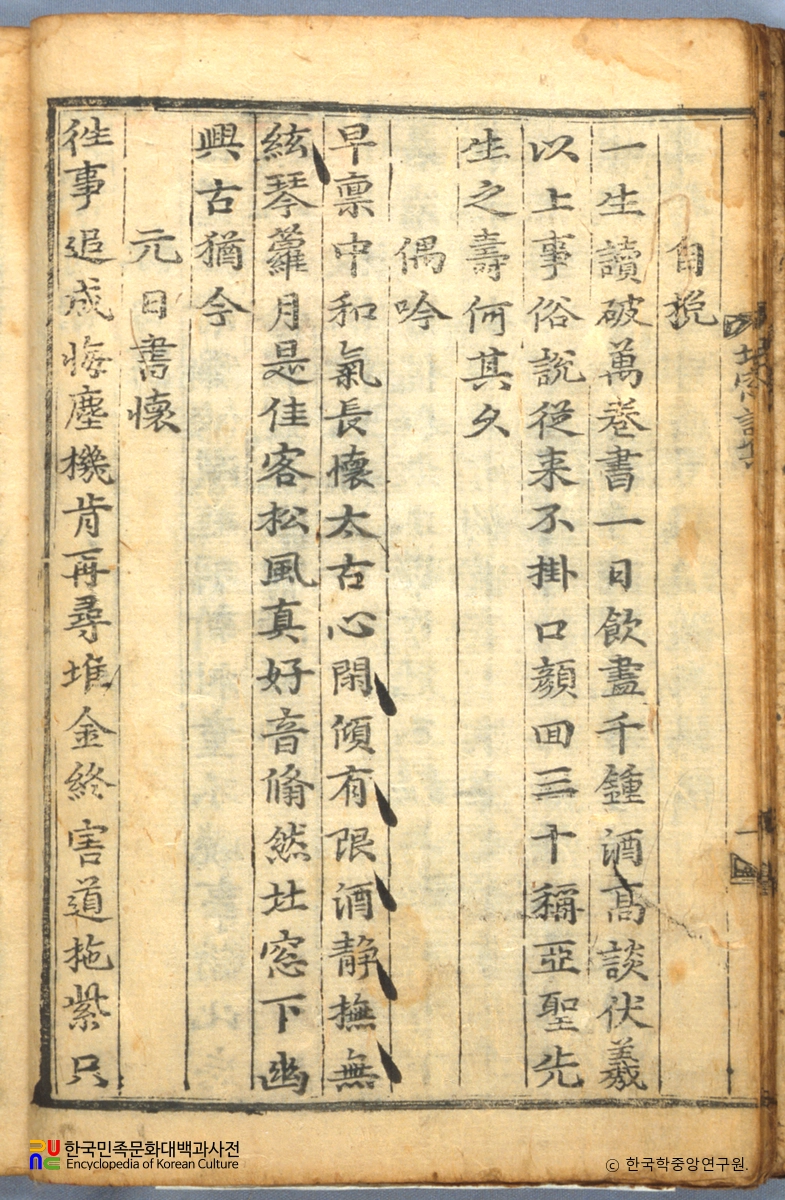 自挽
一生讀破萬卷書一日飲盡千鍾酒高談伏羲
以上事俗說從来不掛口顔回三十稱亞聖先
生之壽何其久
偶吟
早禀中和氣長懷太古心閑傾有限酒靜撫無
絃琴蘿月是佳客松風真好音翛然北窓下幽
興古猶今
元日書懷
徃事追成悔塵機肯再尋堆金終害道拖紫只
한국민족문화대백과사전
Encyclopedia of Korean Culture
ⓒ 한국학중앙연구원.